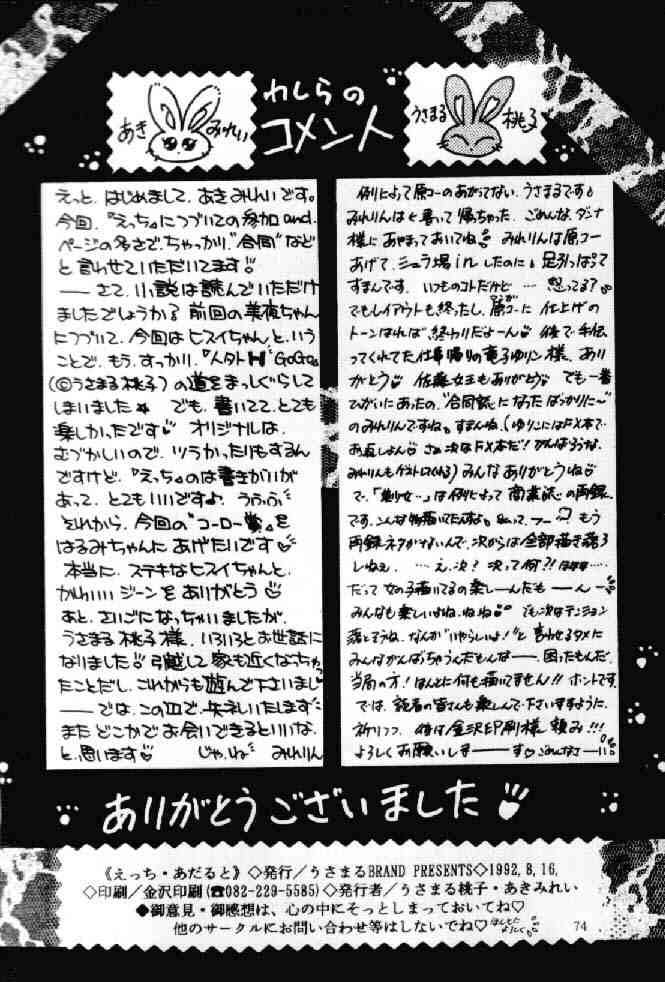 あき みれい
わしらの
コメント
うさまる 桃子
えっと、はじめまして、あきみれいです。
今回、「えっち」につづいての参加and.
ページの多さで、ちゃっかり、"合同"など
と言わせていただいてます!
——さて、小説は読んでいただけ
ましたでしょうか? 前回の美夜ちゃん
につづいて、今回はヒスイちゃんと、いう
ことで、もう、すっかり、
(©うさまる桃子)の道をまっしぐらして
しまいました★ でも、書いてて、とても
楽しかったです♡ オリジナルは、
むづかしいので、ツラかったりもするん
ですけど、「えっち」のは書きがいが
あって、とてもいいです♪ うふふ
それから、今回の"コーロー賞"を
はるみちゃんにあげたいです♡
本当に、ステキなヒスイちゃんと、
かわいいジーンをありがとう♡
あと、さいごになっちゃいましたが、
うさまる桃子様、いろいろとお世話に
なりました♡ 引越して家も近くなっちゃ
たことだし、これからも遊んで下さいまし
——では、この辺で、失礼いたします
またどこかでお会いできるといいな、
と、思います♡ じゃ、ね みれりん
例によって原コーのあがってない、うさまるです♪
みれりんは書って帰ちゃった、ごめんな、ダナ
様にあやまっておいてね♡ みれりんは原コー
あげて、シュラ場inしたのに、足引っぱって
すまんです、いつものコトだけど… 怒ってる?
でもレイアウトも終ったし、原コに仕上げの
トーンはれば、終わりだよーん♡ 後で手伝
ってくれてた仕事帰りの竜子ゆリン様、あり
がとう♡ 佐藤女王もありがとう♡ でも一番
ひがいにあったの、"合同誌"になったばっかりに〜
のみれりんですね、すまんね、(ゆりこにはFX本で
お返しよん♡ さぁ次はFX本だ! がんばろうな、
みれりんもゲストロくれる) みんなありがとうね♡
で、「 女…」は例によって商業誌の再録
です、こんな物描いてたんすよ。 もう
再録ネタがないんで、次からは全部描き
しねぇ、 …え、次? 次って何?!
だって女の子描いてるの楽しーんだもーんー
みんなも楽しいよね、ねね♡ でも次はテンション
落とそうね、なんか"いやらしいよ!"と言わせるタメに
みんながんばっちゃうんだもんなー—、困ったもんだ、
当局の方! ほんとに何も描いてません!! ホントです、
では、読者の皆さんも楽しんで下さいますように、
祈りつつ、後は金沢印刷様 頼み!!!
よろしくお願いしまーーーす♡ ごめんなさーい
ありがとうございました♡
《えっち・あだると》◇発行/うさまるBRAND PRESENTS◇1992,8,16,
◇印刷/金沢印刷(☎082-229-5585)◇発行者/うさまる桃子・あきみれい
●御意見・御感想は、心の中にそっとしまっておいてね♡
他のサークルにお問い合わせ等はしないでね♡
74